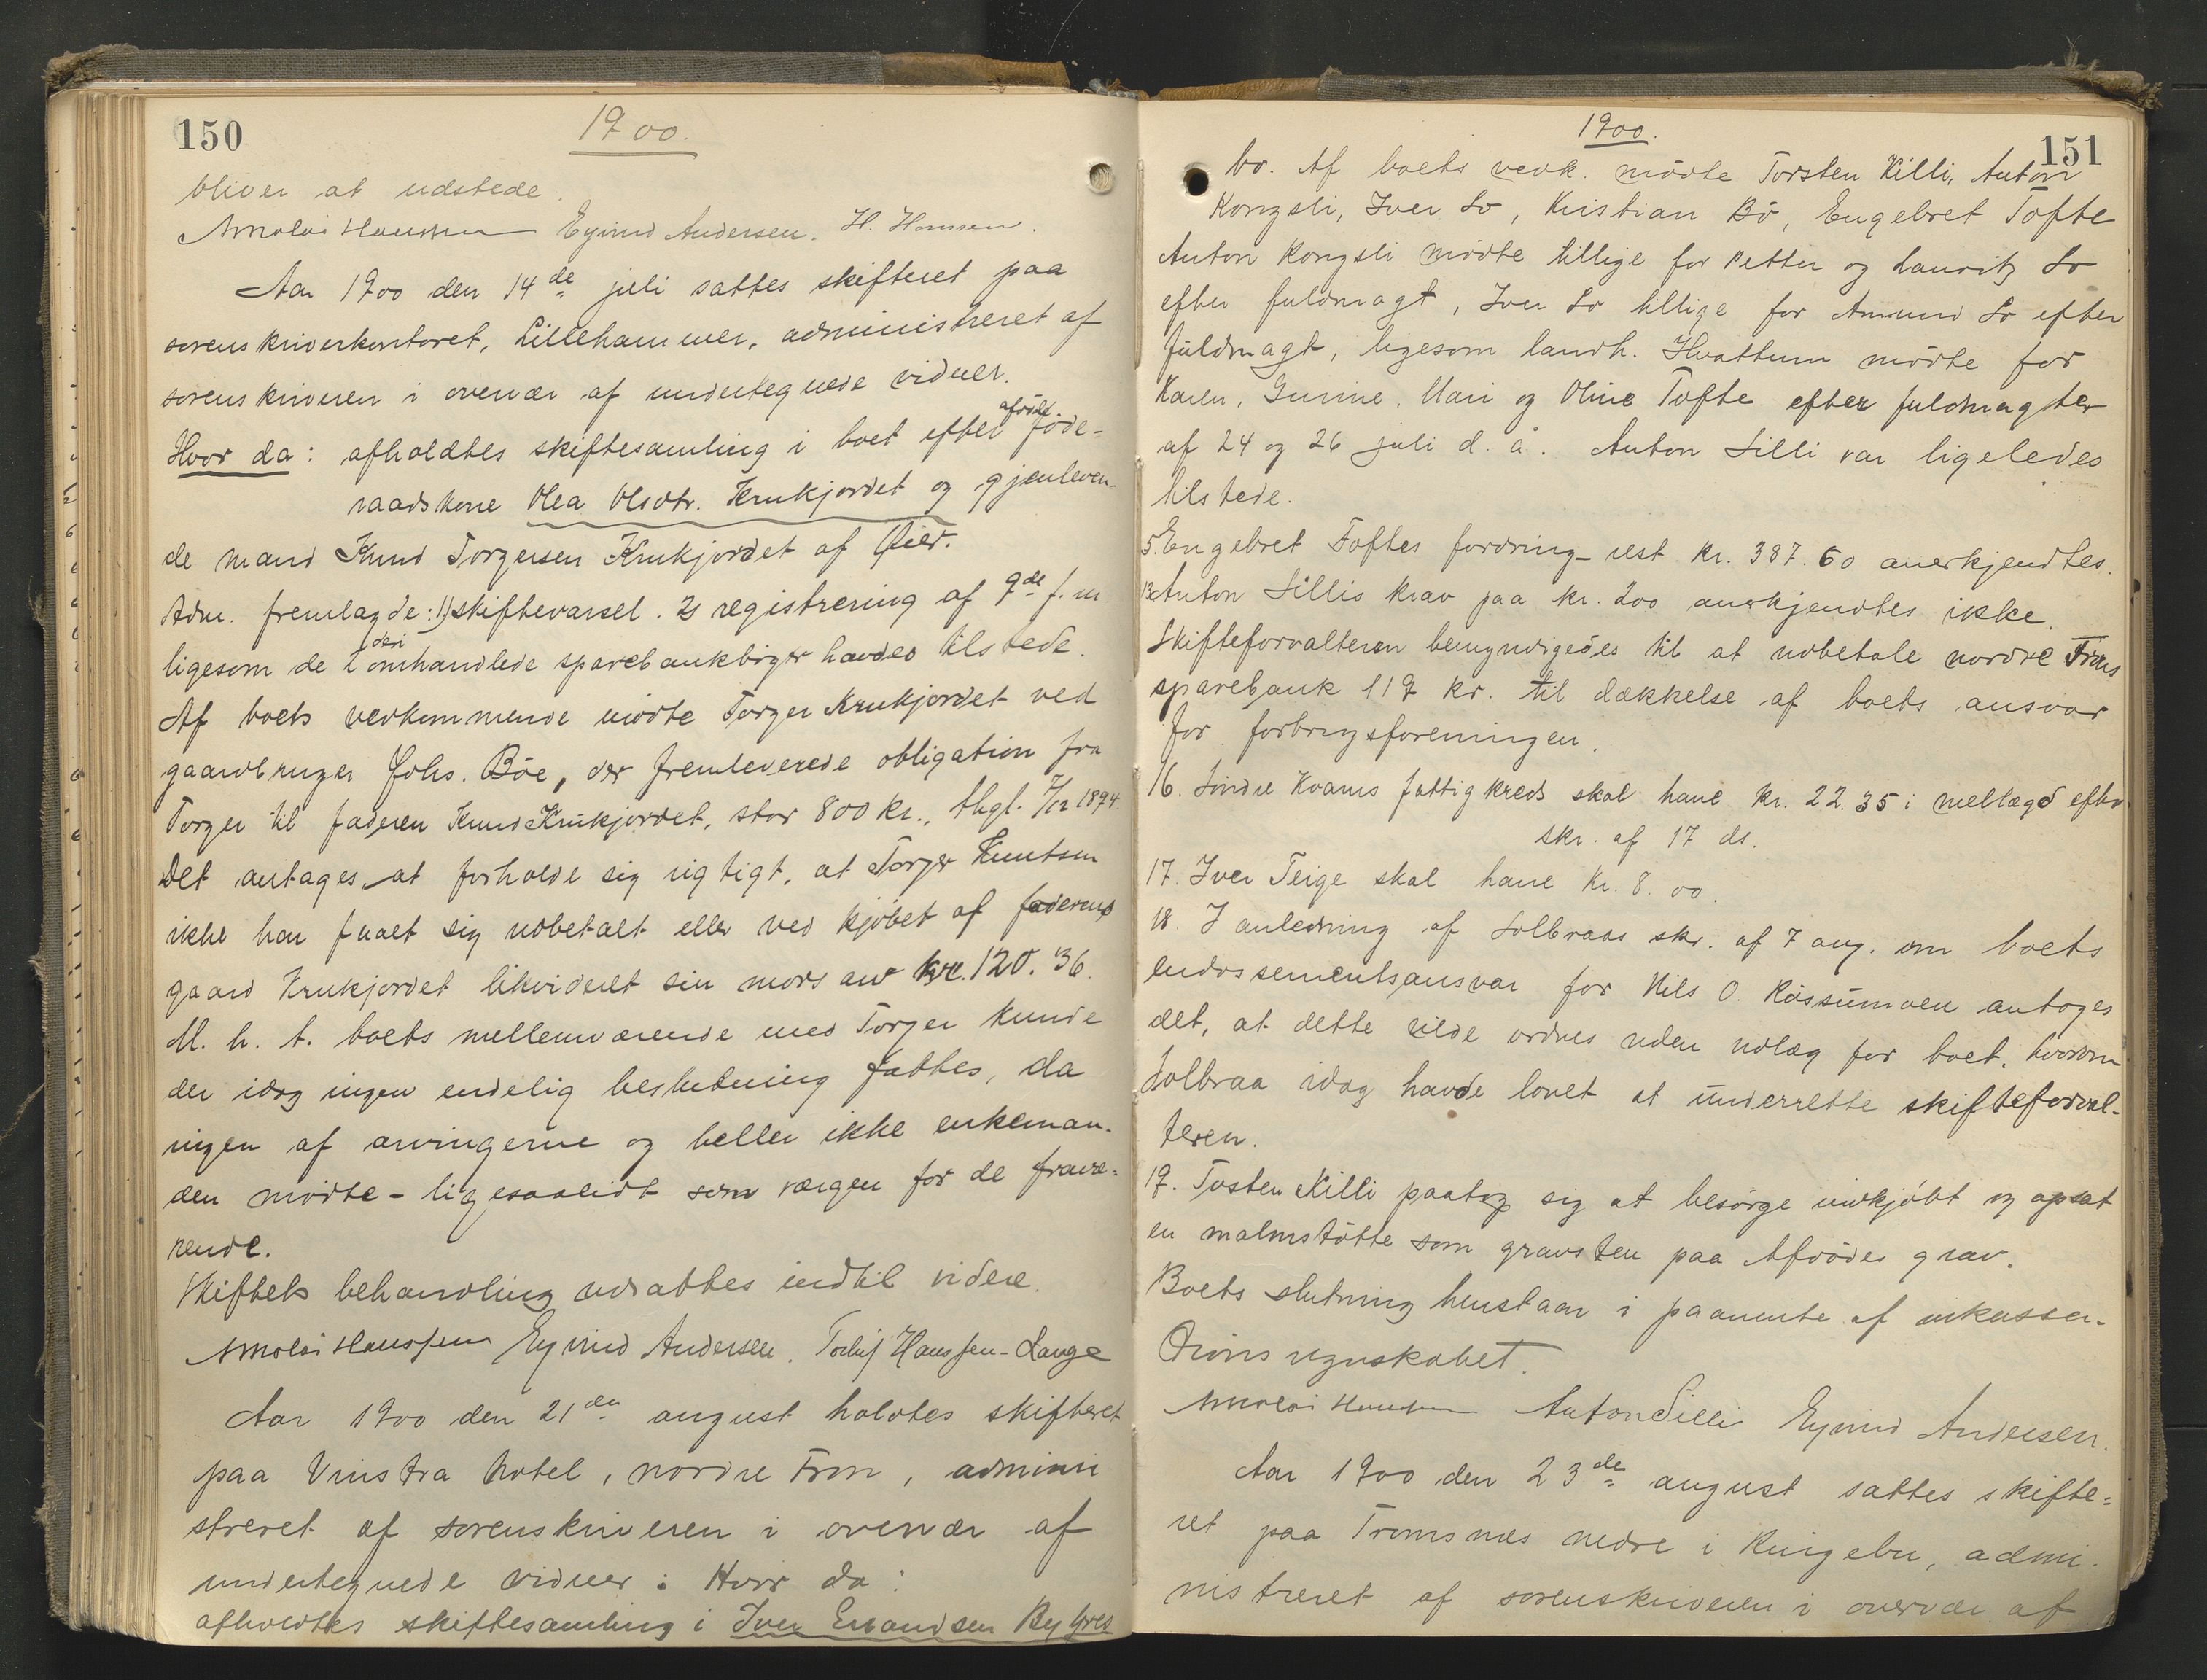 150
1900.
bliver at udstede.
Nicolai Hanssen Eyvind Andersen. H. Hanssen.
Aar 1900 den 14de juli sattes skifteret paa
sorenskriverkontoret, Lillehammer, administreret af
sorenskriveren i overvær af undertegnede vidner.
Hvor da: afholdtes skiftesamling i boet efter afdøde føde-
raadskone Olea Olsdtr. Krukjordet og gjenleven-
de mand Knud Torgersen Krukjordet af Øier.
Adm. fremlagde: 1) skiftevarsel. 2) registrering af 9de f. m.
ligesom de deri omhandlede sparebankbøger havdes tilstede.
Af boets vedkommende mødte Torger Krukjordet ved
gaardbruger Johs. Böe, der fremleverede obligation fra
Torger til faderen Knud Krukjordet, stor 800 kr., thgl. 7/12 1894.
Det antages at forholde sig rigtigt, at Torger Knutsen
ikke har faaet sig udbetalt eller ved kjöbet af faderens
gaard Krukjordet likvideret sin mors arv kr. 120.36.
M. h. t. boets mellemværende med Torger kunde
der idag ingen endelig beslutning fattes, da
ingen af arvingerne og heller ikke enkeman-
den mödte - ligesaalidt som værgen for de fravæ-
rende.
Skiftets behandling udsattes indtil videre.
Nicolai Hanssen Eyvind Andersen. Torleif Hanssen-Lange
Aar 1900 den 21de august holdtes skifteret
paa Vinstra hotel, nordre Fron, admini
streret af sorenskriveren i overvær af
undertegnede vidner. Hvor da:
afholdtes skiftesamling i Iver Erlandsen Bylyres
1900.
151
bo. Af boets vedk. mödte Torsten Killi, Anton
Kongsli, Iver Lo, Kristian Bö, Engebret Tofte
Anton Kongsli mödte tillige for Petter og Lauritz Lo
efter fuldmagt, Iver Lo tillige for Amund Lo efter
fuldmagt, ligesom landh. Hvattum mödte for
Karen, Gunine, Mari og Oline Tofte efter fuldmagter
af 24 og 26 juli d. å. Anton Lilli var ligeledes
tilstede.
5. Engebret Toftes fordring - rest kr. 387.60 anerkjendtes.
13. Anton Lillis krav paa kr. 200 anerkjendtes ikke.
Skifteforvalteren bemyndigedes til at udbetale nordre Frons
sparebank 119 kr. til dækkelse af boets ansvar
for forbrugsforeningen.
16. Söndre Kvams fattigkreds skal have kr. 22.35 i mellægd efter
skr. af 17 ds.
17. Iver Teige skal have kr. 8.00.
18. I anledning af Solbraas skr. af 7 aug. om boets
endossementsansvar for Nils O. Russumoen antoges
det, at dette vilde ordnes uden udlæg for boet, hvorom
Solbraa idag havde lovet at underrette skifteforval-
teren.
19. Tosten Killi paatog sig at besörge indkjöbt og opsat
en malmstötte som gravsten paa Afdödes grav.
Boets slutning henstaar i paavente af inkassa-
tionsregnskabet.
Nicolai Hanssen Anton Lilli Eyvind Andersen.
Aar 1900 den 23de august sattes skifte-
ret paa Tromsnes nedre i Ringebu, admi-
nistreret af sorenskriveren i overvær af